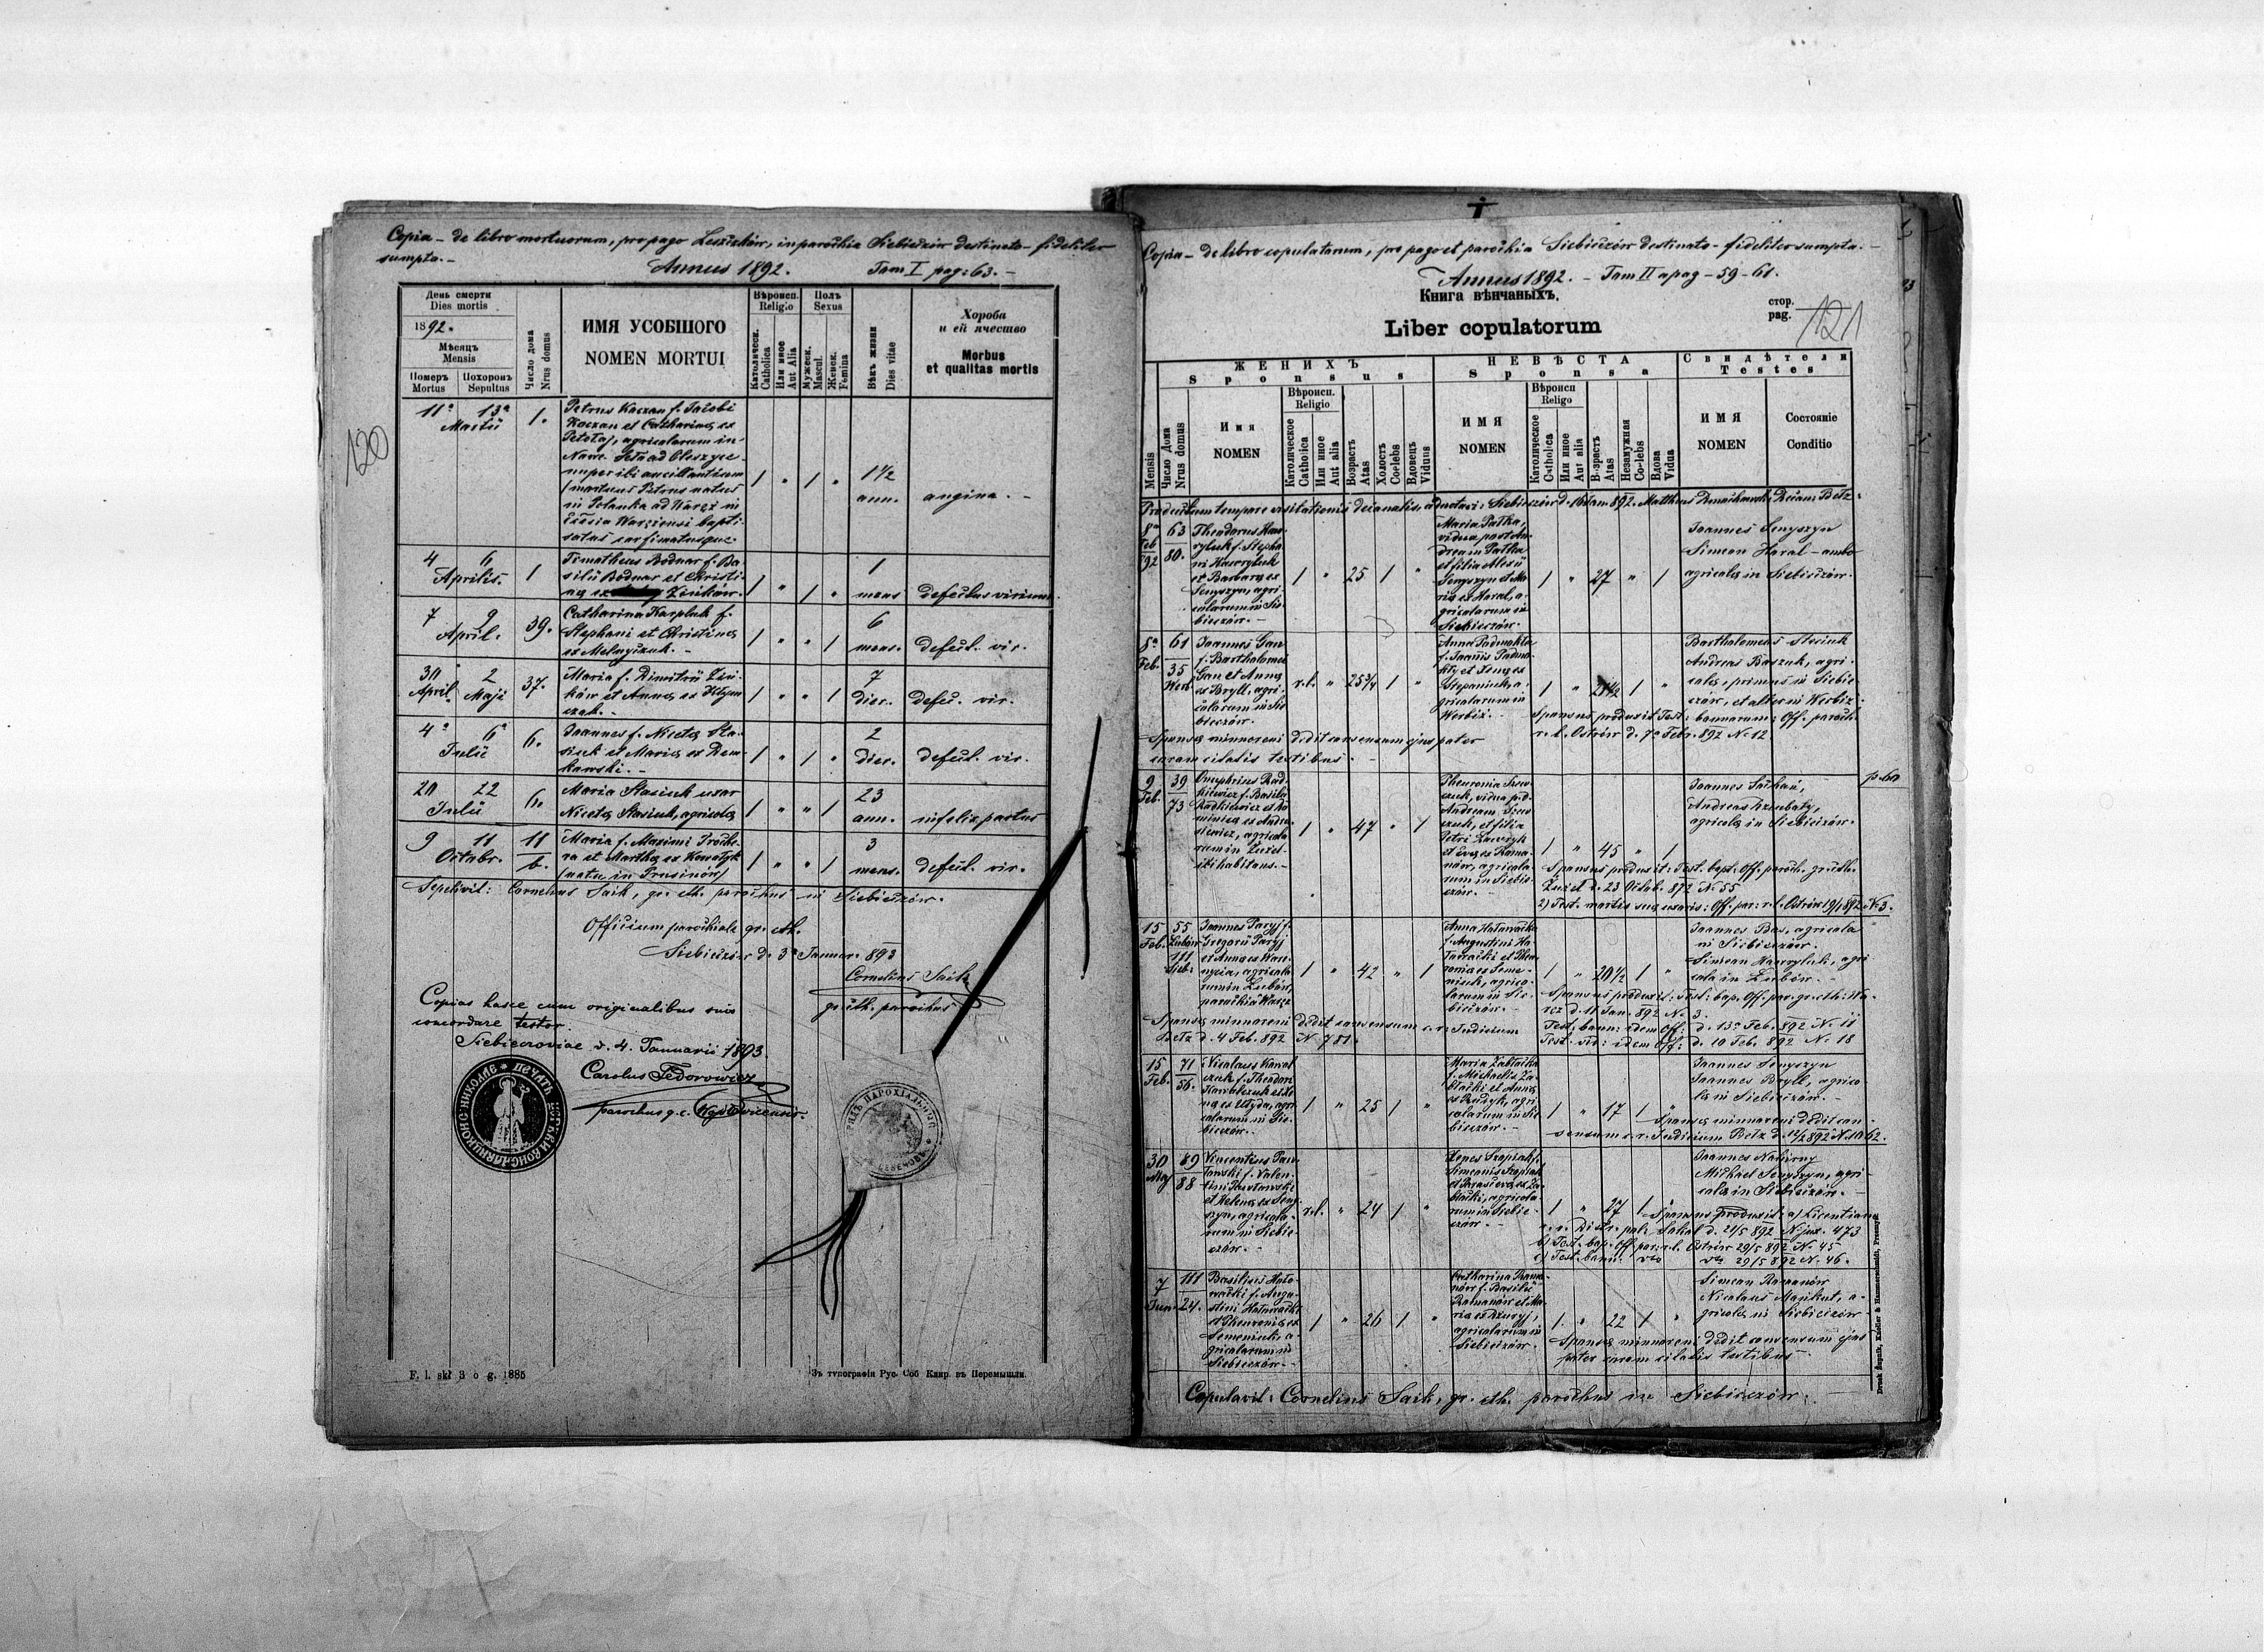 Copia - de libro mortuorum, pro pago Leszczków, in parochia Siebieczów destinato - fideliter
sumpta. -
Annus 1892. Tom I pag: 63. -
120
День смерти
Dies mortis
1892.
Мѣсяцъ
Mensis
Померъ
Mortus
Похоронъ
Sepultus
Число дома
Nrus domus
ИМЯ УСОБШОГО
NOMEN MORTUI
Вѣроисп.
Religio
Католическ.
Catholica
Или иное
Aut Alia
Полъ
Sexus
Мужеск.
Mascul.
Женск.
Femina
Вѣкъ жизни
Dies vitae
Хороба
и ей ячество
Morbus
et qualitas mortis
11a 13a
Martii
1.
Petrus Kaczan f. Jacobi
Kaczan et Catharina ex
agricolarum in
ad Oleszyce
nuper ibi ancillantium
/mortuus Petrus natus
in Polanka ad Waręż in
Warężensi bapti-
satus confirmatusque.
1 " 1 "
1 1/2
ann.
angina. -
4 6
Aprilis.
1
Timotheus Bodnar f. Ba-
silii Bodnar et Christi-
na ex Zinków.
1 " 1 "
1
mens
defectus virium.
7 9
April.
39.
Catharina Karpluk f.
Stephani et Christina
ex Melnyczuk. -
1 " " 1
6
mens.
defect. vir.
30 2
April Maji
37.
Maria f. Dimitrii Zin-
ków et Anna ex
1 " " 1
7
dier.
defect. vir.
4a 6a
Julii
6.
Joannes f. Niceta Sta-
siuk et Maria ex Dem-
kowski. -
1 " 1 "
2
dier.
defect. vir.
20 22
Julii
6.
Maria Stasiuk uxor
Niceta Stasiuk, agricola
1 " " 1
23
ann.
infelix partus
9 11
Octobr.
11
b.
Maria f. Maximi
et Martha ex Kowalyk
/nata in Prusinów/
1 " " 1
3
mens.
defect. vir.
Sepelivit: Cornelius Saik, gr. cth. parochus in Siebieczów.
Officium parochiale gr. cth.
Siebieczów d. 3a Januar. 893
Cornelius Saik
gr. cth. parochus
Copias hasce cum originalibus suis
concordare testor.
Siebieczoviae d. 4. Januarii 1893
Carolus Fedorowicz
parochus g. c.
F. I. skł 3 o g. 1885
Зъ типографіи Рус. Соб Клир. въ Перемышли.
Copia - de libro copulatorum, pro pago et parochia Siebieczów destinato - fideliter sumpta. -
Annus 1892. - Tom II a pag - 59 - 61.
Книга вѣнчаныхъ.
Liber copulatorum
стор.
pag.
121
ЖЕНИХЪ
Sponsus
НЕВѢСТА
Sponsa
Свидѣтели
Testes
Mensis
Число Дома
Nrus domus
Имя
NOMEN
Вѣроисп.
Religio
Католическое
Catholica
Или иное
Aut alia
Возрастъ
Atas
Холостъ
Co-lebs
Вдовецъ
Viduus
ИМЯ
NOMEN
Вѣроисп
Religo
Католическое
Catholica
Или иное
Aut alia
Возрастъ
Atas
Незамужная
Co-lebs
Вдова
Vidua
ИМЯ
NOMEN
Состояніе
Conditio
Productum tempore visitationis decanalis Siebieczów d. 16 Jan. 892. Mattheus Decan. Bełz.
8a
Feb
892
63
80.
Theodorus Haw-
ryluk f. Stepha-
ni Hawryluk
et Barbara ex
Senyszyn, agri-
colarum in Sie-
bieczów. -
1 " 25 1 "
Maria Pałka,
vidua post An-
dream Pałka
et filia Alexii
Senyszyn et Ma-
ria ex Haral, a-
gricolarum in
Siebieczów.
1 " 27 " 1
Joannes Senyszyn
Simeon Haral - ambo
agricola in Siebieczów.
8a
Feb.
61
35
Werb.
Joannes Gan
f. Bartholomei
Gan et Anna
ex Bryll, agri-
colarum in Sie-
bieczów.
r.l. " 25 3/4 1 "
Anna
f. Joannis
et Xenia ex
Stepaniuk, a-
gricolarum in
Werbiż. -
1 " 21 1/2 1 "
Bartholomeus
Andreas Baszuk, agri-
cola, primus in Siebie-
czów, et alter in Werbiż
Sponsus produxit Test: bannorum: Off. paroch.
r. l. Ostrów d. 7a Febr. 892 No 12
Sponsa minnoreni dedit consensum ejus pater
coram citatis testibus. -
p. 60
9
Feb.
39
73
Onuphrius Rad-
kiewicz f. Basilii
Radkiewicz et Do-
minica ex Andru-
siewicz, agricola-
rum in Żużel
ibi habitans. -
1 " 47 " 1
vidua p. d.
Andream
et filia
Petri
et Eva ex Roma-
nów, agricola-
rum in Siebie-
czów. -
1 " 45 " 1
Joannes
Andreas
agricola in Siebieczów.
Sponsus produxit: Test. bapt. Off. paroch. gr. cth.
Żużel d. 23 Octob. 872 No 55
2) Test. mortis sua uxoris: Off. par: r. l. Ostrów 19/1 892 No 3.
15
Feb.
55
Żubów
111
Sieb:
Joannes Paryj f.
Gregorii Paryj
et Anna ex
agricola-
rum in Żubów,
parochia Waręż
1 " 42 " 1
Anna Hatowacka
f. Augustini Ha-
towacki et Pheu-
ronia ex Seme-
niuk, agrico-
larum in Sie-
bieczów. -
1 " 20 1/2 1 "
Joannes Bas, agricola
in Siebieczów.
Simeon Hawryluk, agri-
cola in Żubów. -
Sponsus produxit: Test: bap. Off. par. gr. cth: Wa-
ręż d. 11 Jan. 892 No 3.
Test: bann: idem Off: d. 13a Feb. 892 No 11
Test. vid: idem Off: d. 10 Feb. 892 No 18
Sponsa minnoreni dedit consensum c. r. Judicium
Bełz d. 4 Feb. 892 N. 781.
15
Feb.
71
56.
Nicolaus Kowal-
czuk f. Theodori
Kowalczuk et
agri-
colarum in Sie-
bieczów. -
1 " 25 1 "
Maria Zabłacka
f. Michaelis Za-
błacki et Anna
ex agri-
colarum in Sie-
bieczów. -
1 " 17 1 "
Joannes Senyszyn
Joannes Bryll, agrico-
la in Siebieczów. -
Sponsa minnoreni dedit con-
sensum c. r. Judicium Bełz d. 12/2 892 No 1062.
30
Maj
89
88
Vincentius
f. Valen-
tini
et Helena ex Seny-
szyn, agricola-
rum in Siebie-
czów. -
r.l. " 24 1 "
Xenia f.
Simeonis
et Parascevia ex Za-
błacki, agricola-
rum in Siebie-
czów. -
1 " 27 1 "
Joannes Nahirny
Michael Senyszyn, agri-
cola in Siebieczów. -
Sponsus produxit: a) Licentiam
Sokal d. 21/5 892 N. 473
b) Test. bap. Off. par: r. l. Ostrów 29/5 892 No 45
c) Test. bann: 29/5 892 No 46.
7
Jun.
111
24.
Basilius Hato-
wacki f. Augu-
stini Hatowacki
et Pheuronia ex
Semeniuk, a-
gricolarum in
Siebieczów. -
1 " 26 1 "
Catharina Roma-
nów f. Basilii
Romanów et Ma-
ria ex
agricolarum in
Siebieczów. -
1 " 22 1 "
Simeon Romanów
Nicolaus a-
gricola in Siebieczów
Sponsa minnoreni dedit consensum ejus
pater coram citatis testibus -
Copulavit: Cornelius Saik, gr. cth. parochus in Siebieczów.